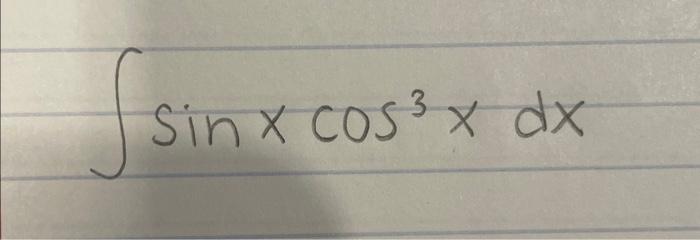 ∫ sin x cos³ x dx